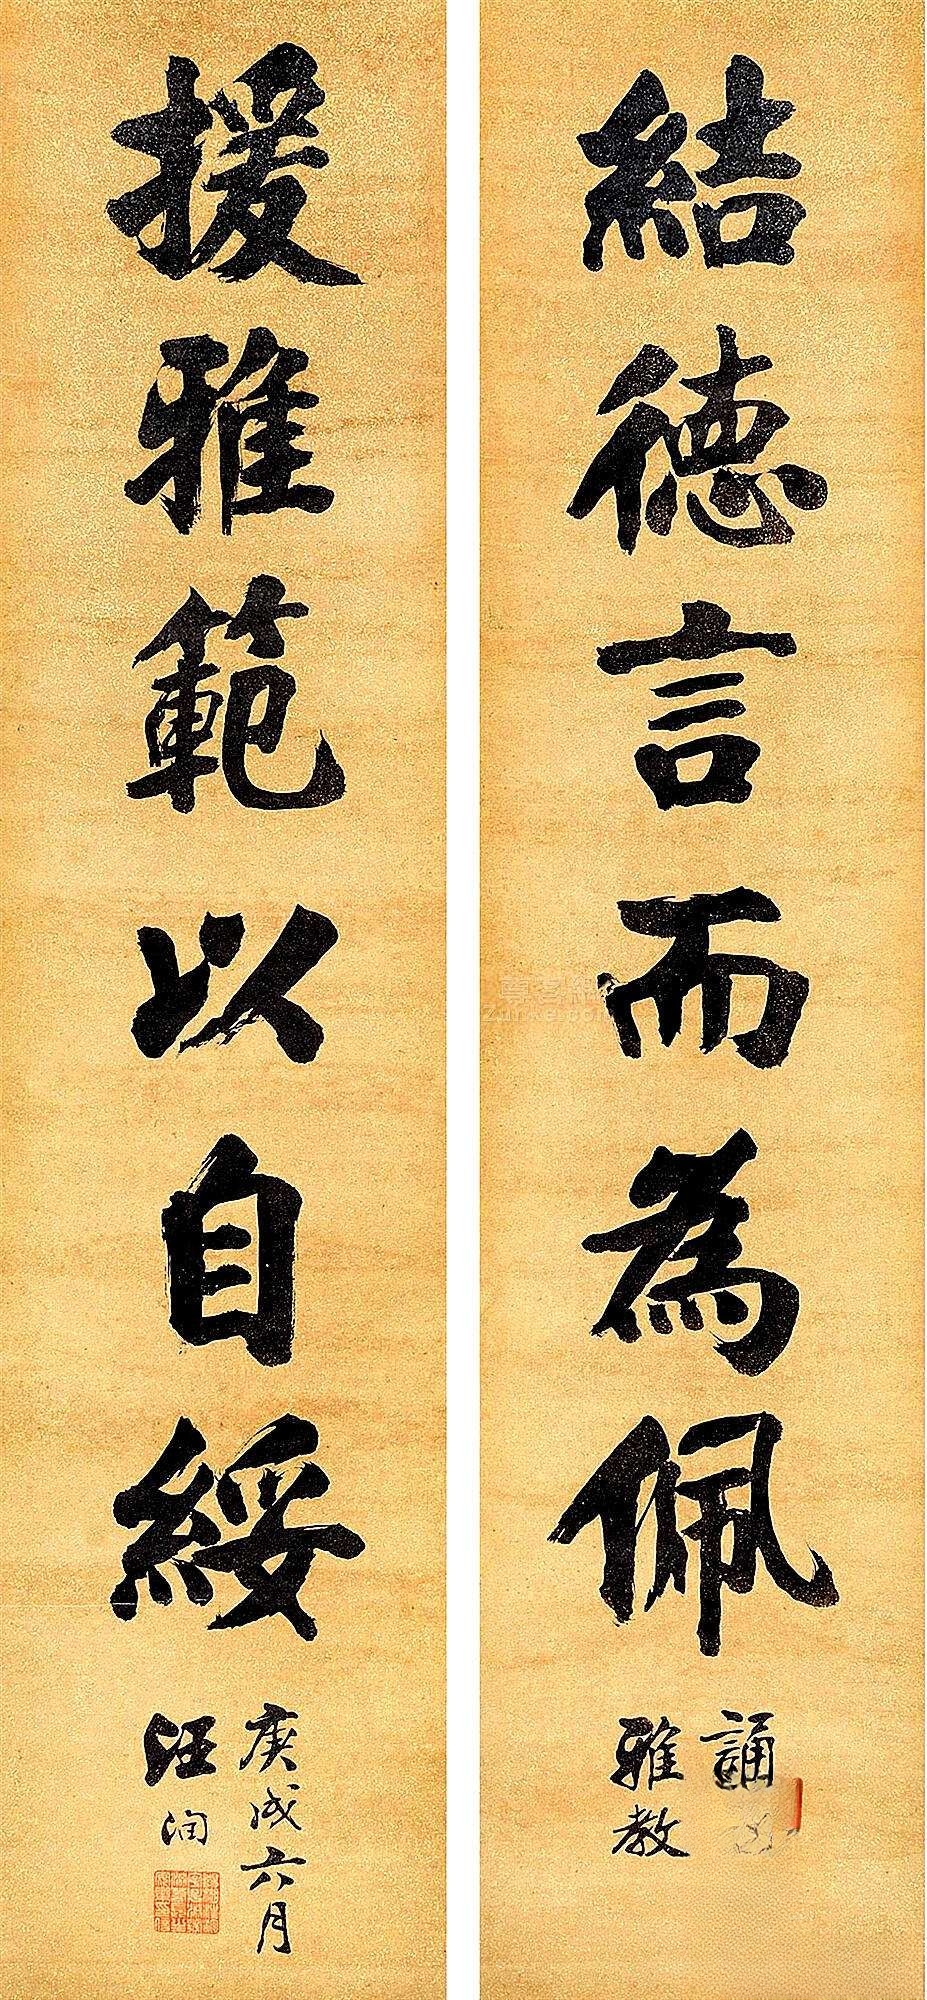 結德言而為佩
誦
雅教
援雅範以自綏
庚戌六月
汪洵